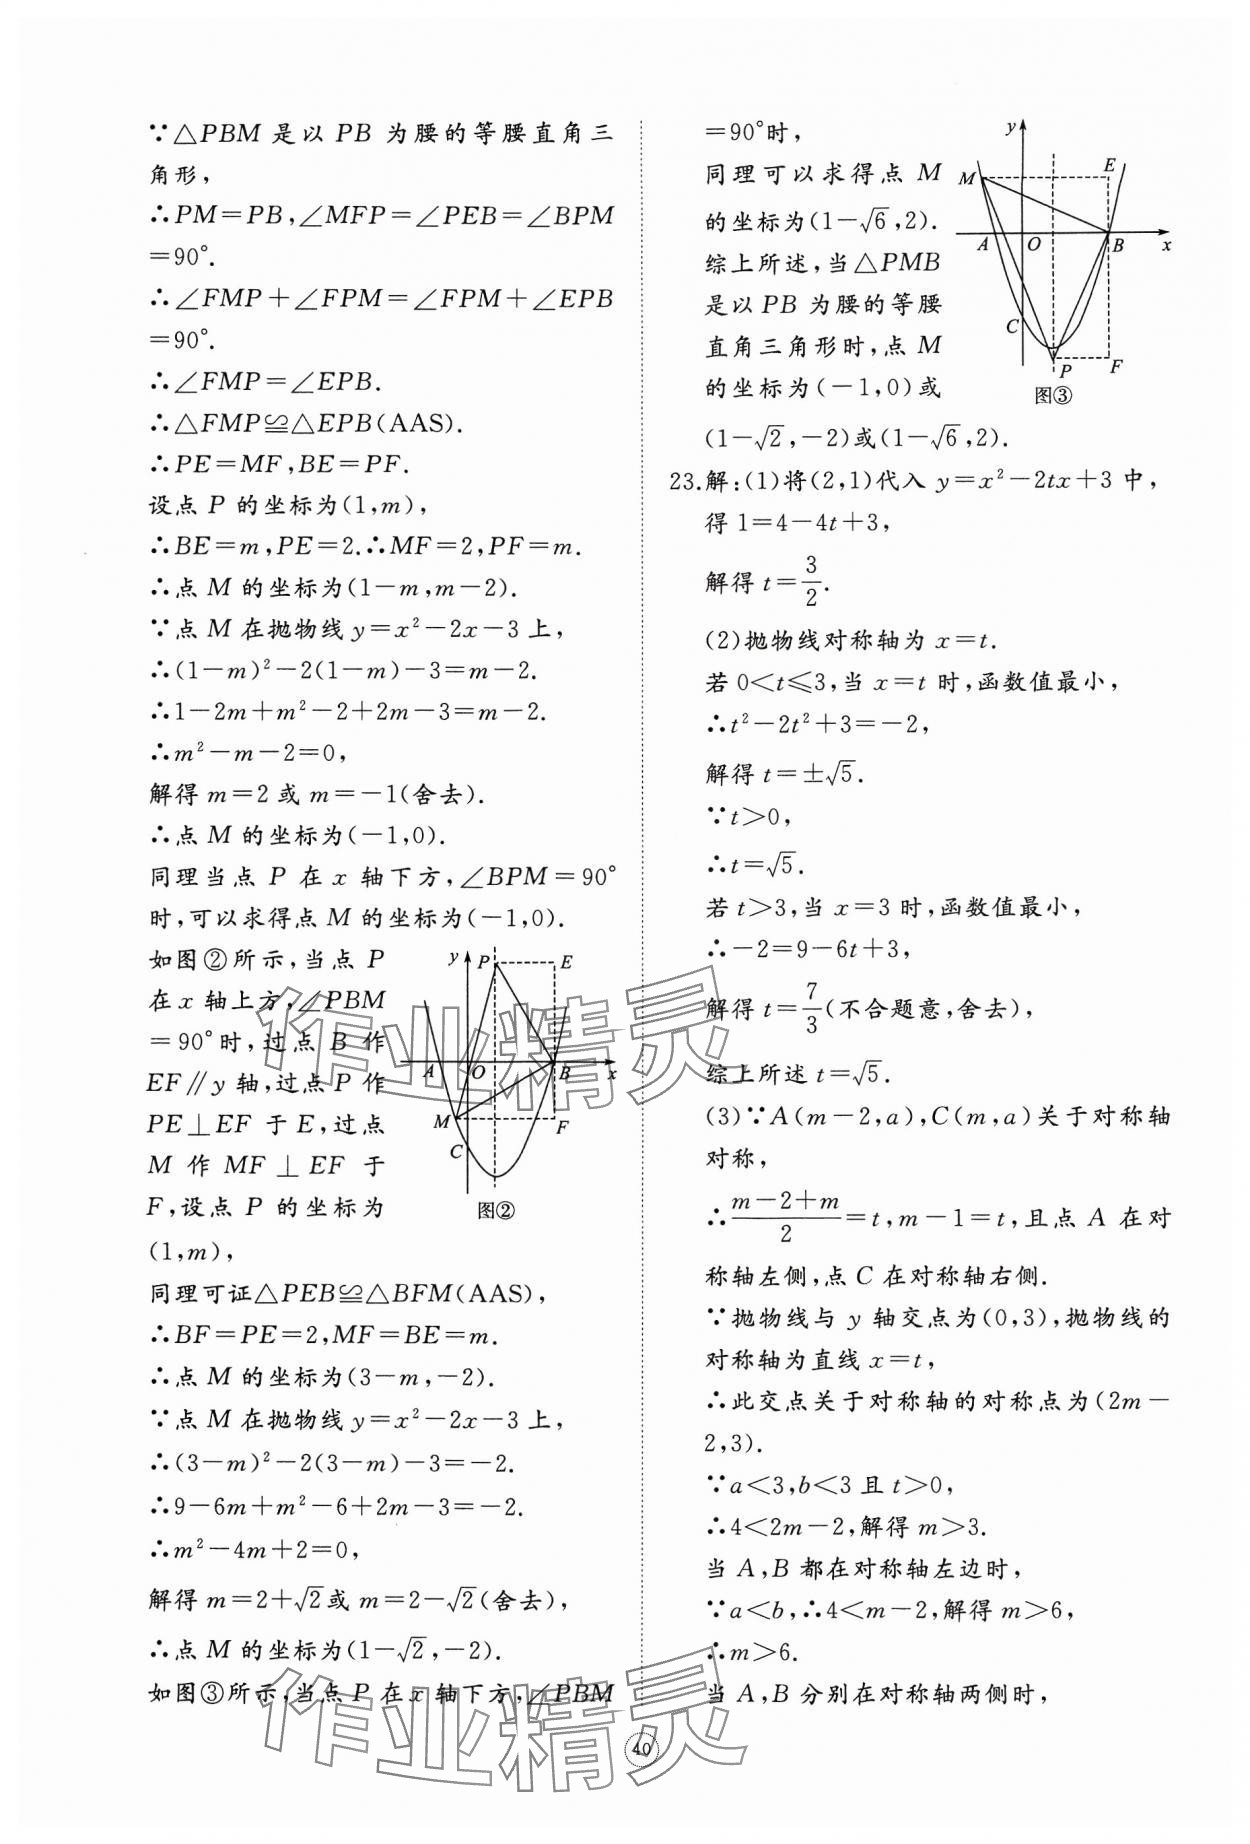 ∵△PBM 是以 PB 为腰的等腰直角三
角形，
∴PM=PB,∠MFP=∠PEB=∠BPM
=90°.
∴∠FMP+∠FPM=∠FPM+∠EPB
=90°.
∴∠FMP=∠EPB.
∴△FMP≌△EPB(AAS).
∴PE=MF,BE=PF.
设点 P 的坐标为(1,m)，
∴BE=m,PE=2.∴MF=2,PF=m.
∴点 M 的坐标为(1-m,m-2).
∵点 M 在抛物线 y=x²-2x-3 上，
∴(1-m)²-2(1-m)-3=m-2.
∴1-2m+m²-2+2m-3=m-2.
∴m²-m-2=0，
解得 m=2 或 m=-1(舍去).
∴点 M 的坐标为(-1,0).
同理当点 P 在 x 轴下方，∠BPM=90°
时，可以求得点 M 的坐标为(-1,0).
如图②所示，当点 P
在 x 轴上方，∠PBM
=90°时，过点 B 作
EF∥y 轴，过点 P 作
PE⊥EF 于 E，过点
M 作 MF⊥EF 于
F，设点 P 的坐标为
(1,m)，
y P E
A O B x
M F
C
图②
同理可证△PEB≌△BFM(AAS)，
∴BF=PE=2,MF=BE=m.
∴点 M 的坐标为(3-m,-2).
∵点 M 在抛物线 y=x²-2x-3 上，
∴(3-m)²-2(3-m)-3=-2.
∴9-6m+m²-6+2m-3=-2.
∴m²-4m+2=0，
解得 m=2+√2或 m=2-√2(舍去)，
∴点 M 的坐标为(1-√2,-2).
如图③所示，当点 P 在 x 轴下方，∠PBM
=90°时，
同理可以求得点 M
的坐标为(1-√6,2).
综上所述，当△PMB
是以 PB 为腰的等腰
直角三角形时，点 M
的坐标为(-1,0)或
(1-√2,-2)或(1-√6,2).
y
M E
A O B x
C
P F
图③
23.解：(1)将(2,1)代入 y=x²-2tx+3 中，
得 1=4-4t+3，
解得 t=3/2.
(2)抛物线对称轴为 x=t.
若 0<t≤3，当 x=t 时，函数值最小，
∴t²-2t²+3=-2，
解得 t=±√5.
∵t>0，
∴t=√5.
若 t>3，当 x=3 时，函数值最小，
∴-2=9-6t+3，
解得 t=7/3(不合题意，舍去)，
综上所述 t=√5.
(3)∵A(m-2,a),C(m,a)关于对称轴
对称，
∴(m-2+m)/2=t,m-1=t，且点 A 在对
称轴左侧，点 C 在对称轴右侧.
∵抛物线与 y 轴交点为(0,3)，抛物线的
对称轴为直线 x=t，
∴此交点关于对称轴的对称点为(2m-
2,3).
∵a<3,b<3 且 t>0，
∴4<2m-2，解得 m>3.
当 A,B 都在对称轴左边时，
∵a<b，∴4<m-2，解得 m>6，
∴m>6.
当 A,B 分别在对称轴两侧时，
作业精灵
作业精灵
40